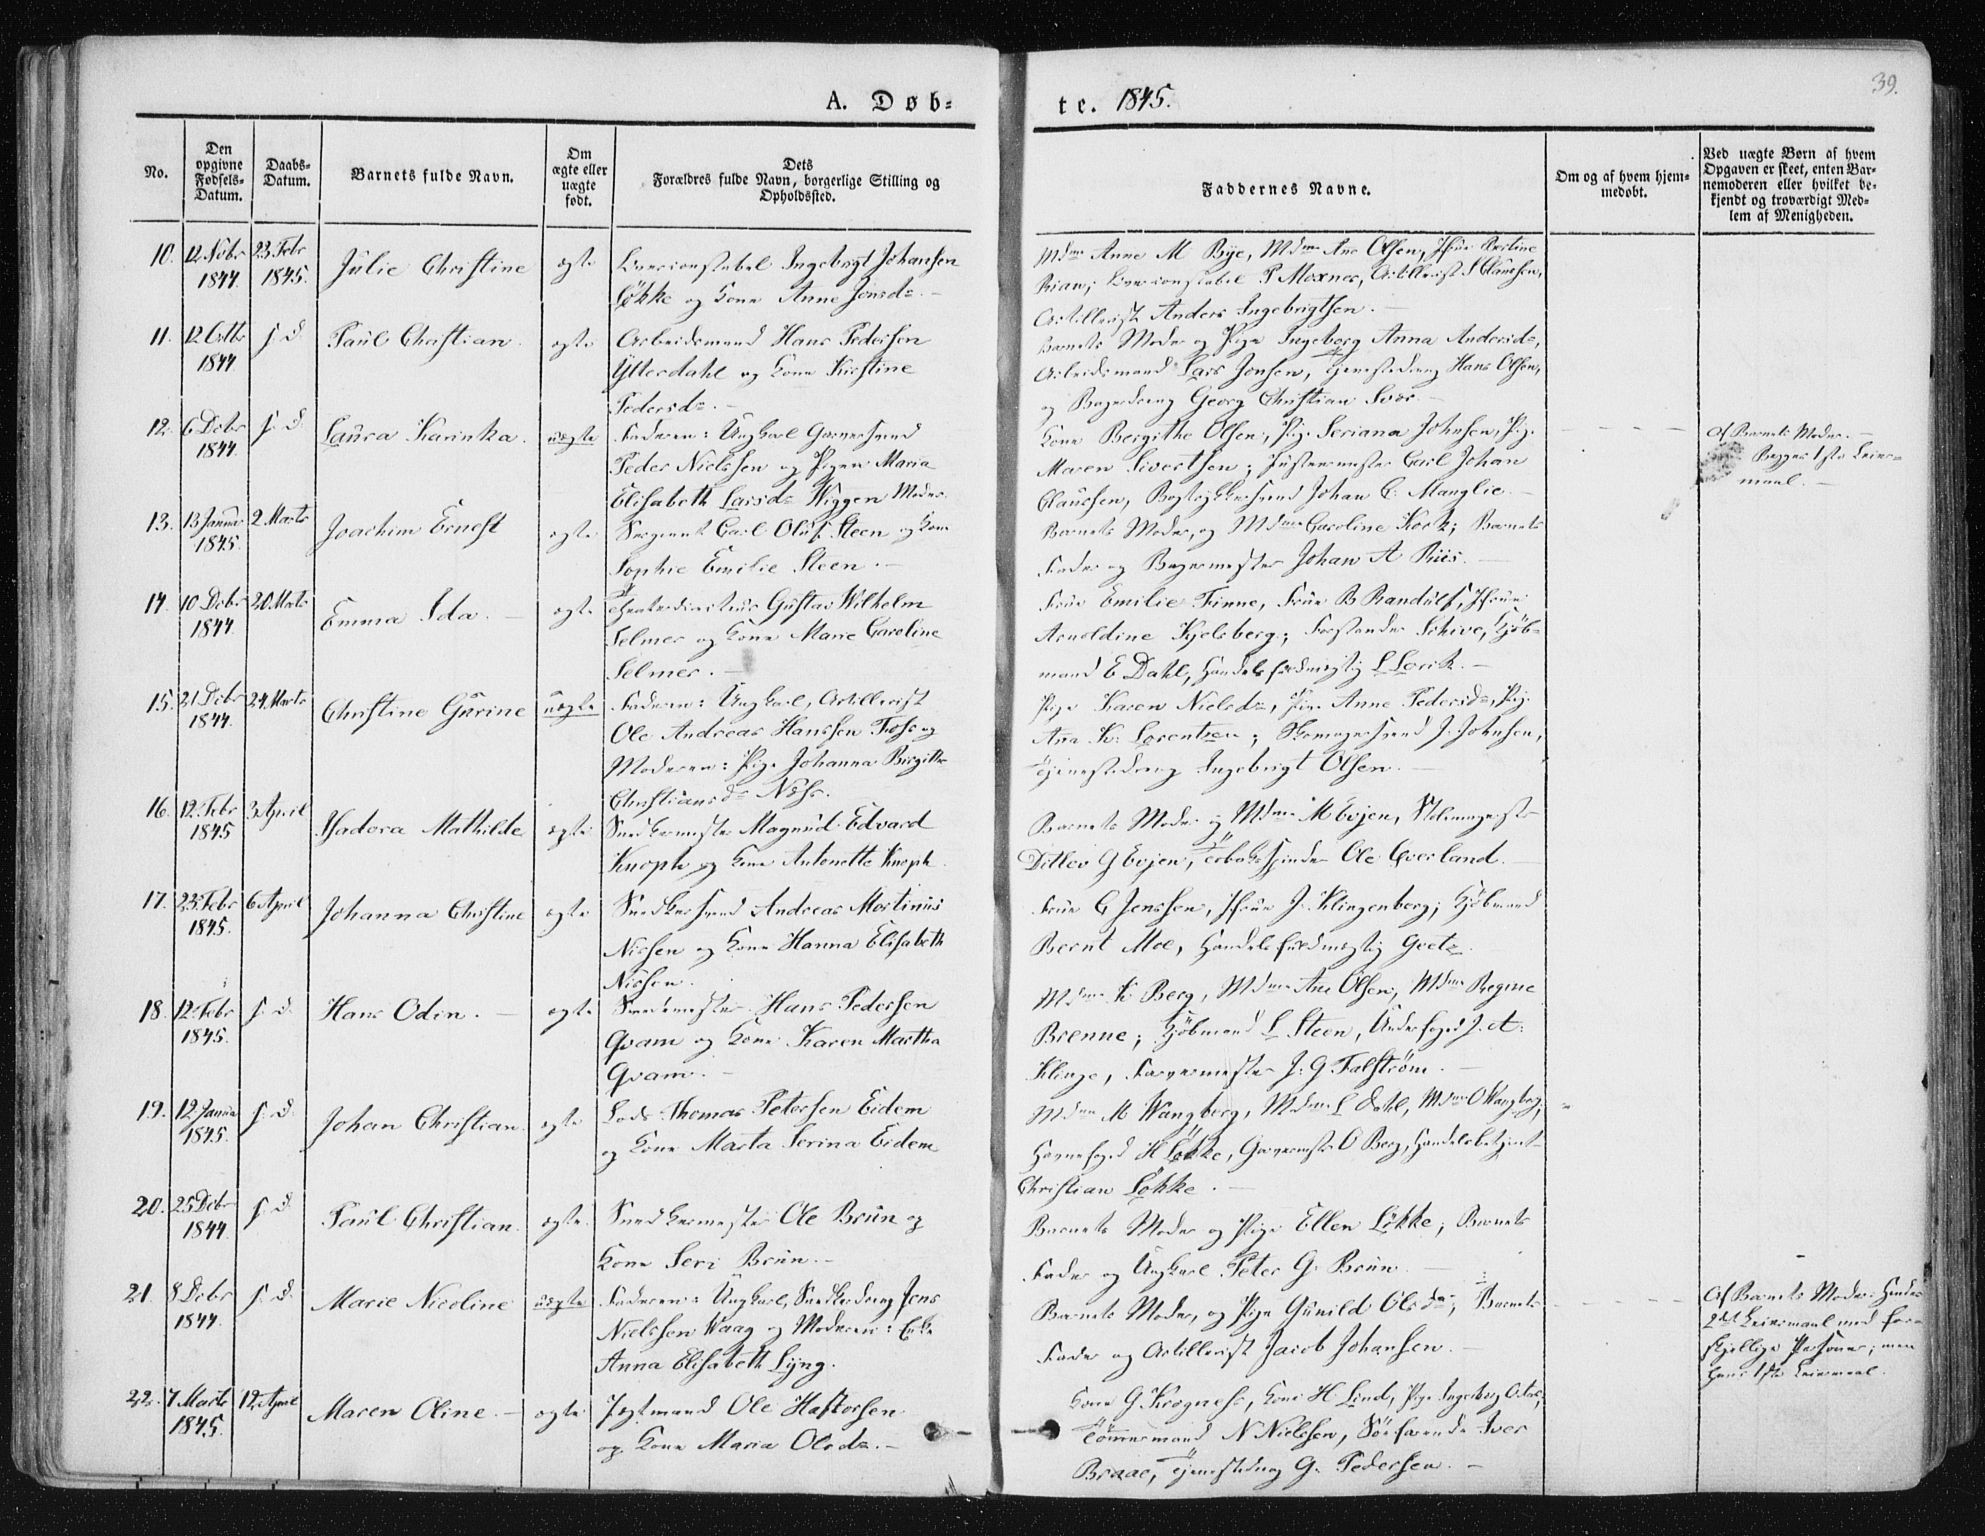 A. Døb-
te. 1845.
39.
No.
Den opgivne Fødsels-Datum.
Daabs-Datum.
Barnets fulde Navn.
Om ægte eller uægte født.
Dets Forældres fulde Navn, borgerlige Stilling og Opholdssted.
Faddernes Navne.
Om og af hvem hjem-
medøbt.
Ved uægte Børn af hvem
Opgaven er skeet, enten Bar-
nemoderen eller hvilket be-
kjendt og troværdigt Med-
lem af Menigheden.
10. 12 Novbr 1844 23 Febr 1845. Julie Christine ægte
Ingebrigt Johansen
Løkke og Kone Anne Jonsd. -
Mdm Anne M Bye, Mdm Ane Olsen, Jfrue
P Moxnes, Artillerist
Artillerist Anders Ingebrigtsen. -
11. 12 Octbr 1844 s. d. Paul Christian. ægte
Arbeidsmand Hans Pedersen
Ytterdahl og Kone Kirstine
Pedersd. -
Barnets Moder og Pige Ingeborg Anna Andersd.,
Arbeidsmand Lars Jonsen, Tjenestedreng Hans Olsen,
og Bagerdreng Georg Christian
12. 6 Decbr 1844 s. d. Laura Karinka. uægte
Faderen: Ungkarl Garversvend
Peder Nielssen og Pigen Maria
Elisabeth Larsd. Wiggen Moder.
Kone Bergithe Olsen, Pige Seriana Johnsen, Pige
Maren Sivertsen; Carl Johan
Claussen, Bogtrykkersvend Johan C. Manglie. -
Af Barnets Moder. -
Begges 1ste Leier-
maal. -
13. 13 Januar 1845. 2 Marts Joachim Ernest ægte
Sergeant Carl Oluf Steen og Kone
Sophie Emilie Steen. -
Barnets Moder, og Mdm Caroline Kock; Barnets
Fader og Bagermester Johan A Riis. -
14. 10 Decbr 1844 20 Marts Emma Ida. - ægte
Theaterdirecteur Gustav Wilhelm
Selmer og Kone Marie Caroline
Selmer. -
Frue Emilie Finne, Frue B Randulf, Jfrue
Arnoldine Kjelsberg; Forstander Schive, Kjøb-
mand E Dahl, Handelsfuldmægtig L Lorck. -
15. 21 Decbr 1844. 24 Marts Christine Gurine uægte
Faderen: Ungkarl, Artillerist
Ole Andreas Hanssen Foss og
Moderen: Pige Johanna Birgitte
Christiansd. Næss.
Pige Karen Nielsd., Pige Anne Pedersd., Pige
Ana K. Lorentzen; Skomagersvend J. Johnsen,
Tjenestedreng Ingebrigt Olsen. -
16. 12 Febr 1845 3 April Isadora Mathilde ægte
Snedkermester Magnus Edvard
Knoph og Kone Antonette Knoph.
Barnets Moder og Mdm M Evjen, Stolemagermester
Ditlev G Evjen, Tobaksspinder Ole Qverland. -
17. 23 Febr 1845. 6 April Johanna Christine ægte
Snedkersvend Andreas Mortinus
Nissen og Kone Hanna Elisabeth
Nissen.
Frue C Jenssen, Jfrue J. Klingenberg; Kjøbmand
Bernt Moe, Handelsfuldmægtig Goetz.
18. 12 Febr 1845. s. d. Hans Odin. - ægte
Smedemester Hans Pedersen
Qvam og Kone Karen Martha
Qvam. -
Mdm K Berg, Mdm Ane Olsen, Mdm Regine
Brenne; Kjøbmand L Steen, Underfoged J. A.
Klinge, Farvermester J. G Falstrøm. -
19. 12 Januar 1845. s. d. Johan Christian. ægte
Lods Thomas Petersen Eidem
og Kone Marta Serina Eidem
Mdm M Wangberg, Mdm L Dahl, Mdm O Wangberg,
Havnefoged H Løkke, Garvermester O Berg, Handelsbetjent
Christian Løkke. -
20. 25 Decbr 1844. s. d. Paul Christian. ægte.
Snedkermester Ole Brun og
Kone Seri Brun. -
Barnets Moder og Pige Ellen Løkke; Barnets
Fader og Ungkarl Peter G. Brun. -
21. 8 Decbr 1844. s. d. Marie Nicoline uægte
Faderen: Ungkarl, Snedkerdreng Jens
Nielssen Waag og Moderen: Enke
Anna Elisabeth Lyng.
Barnets Moder, og Pige Gunild Olsd.; Barnets
Fader og Artillerist Jacob Johansen. -
Af Barnets Moder. Hendes
2det Leiermaal med for-
skjellige Personer; men
hans 1ste Leiermaal.
22. 7 Marts 1845. 12 April Maren Oline. - ægte
Jægtmand Ole Haftorsen
og Kone Maria Olsd. -
Kone G. Krogness, Kone H. Lind, Pige Ingeborg
Tømmermand N Nielssen, Søefarende Iver
Braae, Tjenestedreng G. Pedersen. -